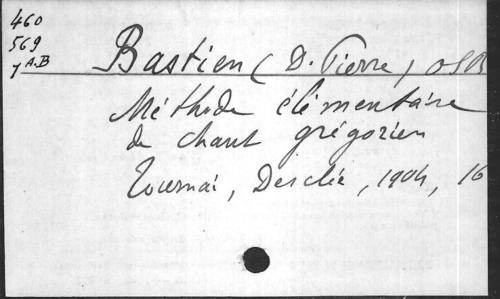 460
569
7 A.B
Bastien (D. Pierre) OSB
Méthode élémentaire
de chant grégorien
Tournai, Desclée, 1904, 16